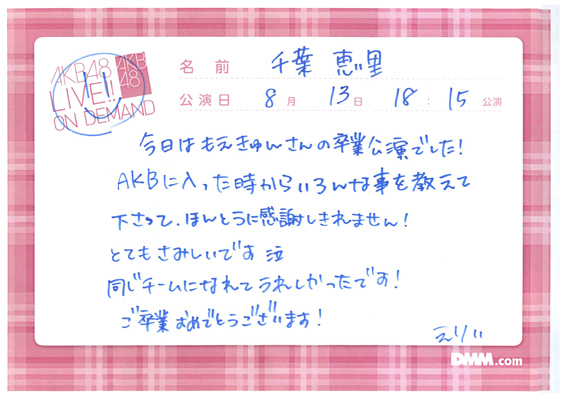 AKB48
LIVE!!
ON DEMAND
AKB
48
名前 千葉 恵里
公演日 8月 13日 18:15 公演
今日はもえきゅんさんの卒業公演でした!
AKBに入った時からいろんな事を教えて
下さって、ほんとうに感謝しきれません!
とてもさみしいです 泣
同じチームになれてうれしかったです!
ご卒業おめでとうございます!
えりい
DMM.com